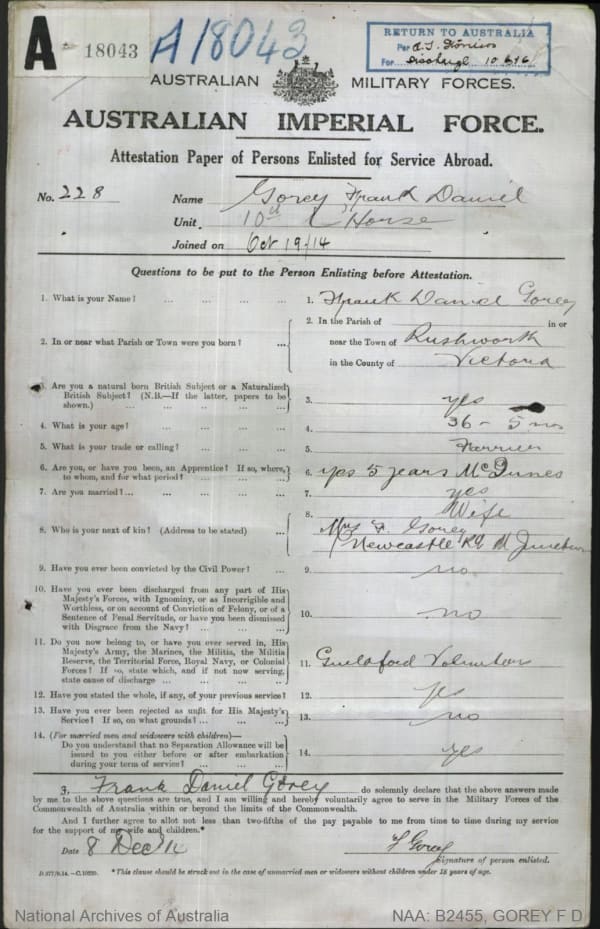 A
18043
A18043
RETURN TO AUSTRALIA
Per A.T.
For Discharge 10.6.16
AUSTRALIAN MILITARY FORCES.
AUSTRALIAN IMPERIAL FORCE.
Attestation Paper of Persons Enlisted for Service Abroad.
No. 228 Name Gorey Frank Daniel
Unit 10th L Horse
Joined on Oct 19/14
Questions to be put to the Person Enlisting before Attestation.
1. What is your Name? ... ... ... 1. Frank Daniel Gorey
2. In or near what Parish or Town were you born? ... 2. In the Parish of in or
near the Town of Rushworth
in the County of Victoria
3. Are you a natural born British Subject or a Naturalized
British Subject? (N.B.—If the latter, papers to be
shown.) ... ... ... ... 3. yes
4. What is your age? ... ... ... 4. 36 - 5 mos
5. What is your trade or calling? ... ... 5. Farrier
6. Are you, or have you been, an Apprentice? If so, where,
to whom, and for what period? ... ... 6. yes 5 years McInnes
7. Are you married? ... ... ... ... 7. yes
8. Who is your next of kin? (Address to be stated) ... 8. Wife
Mrs F. Gorey
Newcastle Rd M Junction
9. Have you ever been convicted by the Civil Power? ... 9. no
10. Have you ever been discharged from any part of His
Majesty's Forces, with Ignominy, or as Incorrigible and
Worthless, or on account of Conviction of Felony, or of a
Sentence of Penal Servitude, or have you been dismissed
with Disgrace from the Navy? ... ... 10. no
11. Do you now belong to, or have you ever served in, His
Majesty's Army, the Marines, the Militia, the Militia
Reserve, the Territorial Force, Royal Navy, or Colonial
Forces? If so, state which, and if not now serving,
state cause of discharge ... ... ... 11. Guildford Volunteers
12. Have you stated the whole, if any, of your previous service? 12. yes
13. Have you ever been rejected as unfit for His Majesty's
Service? If so, on what grounds? ... ... 13. no
14. (For married men and widowers with children)—
Do you understand that no Separation Allowance will be
issued to you either before or after embarkation
during your term of service? ... ... 14. yes
I, Frank Daniel Gorey do solemnly declare that the above answers made
by me to the above questions are true, and I am willing and hereby voluntarily agree to serve in the Military Forces of the
Commonwealth of Australia within or beyond the limits of the Commonwealth.
And I further agree to allot not less than two-fifths of the pay payable to me from time to time during my service
for the support of my wife and children.*
Date 8 Dec 14 F Gorey
Signature of person enlisted.
D.977/9.14.—C.10220. *This clause should be struck out in the case of unmarried men or widowers without children under 18 years of age.
National Archives of Australia NAA: B2455, GOREY F D